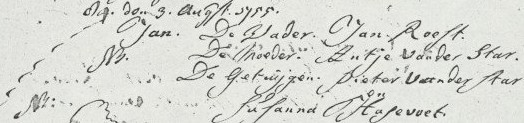 den 3. Augst. 1755.
Jan. De Vader. Jan. Roest.
N. De Moeder. Antje Vander Star.
De Getuijgen. Pieter Vander Star
en
N: Susanna Hasevoet.